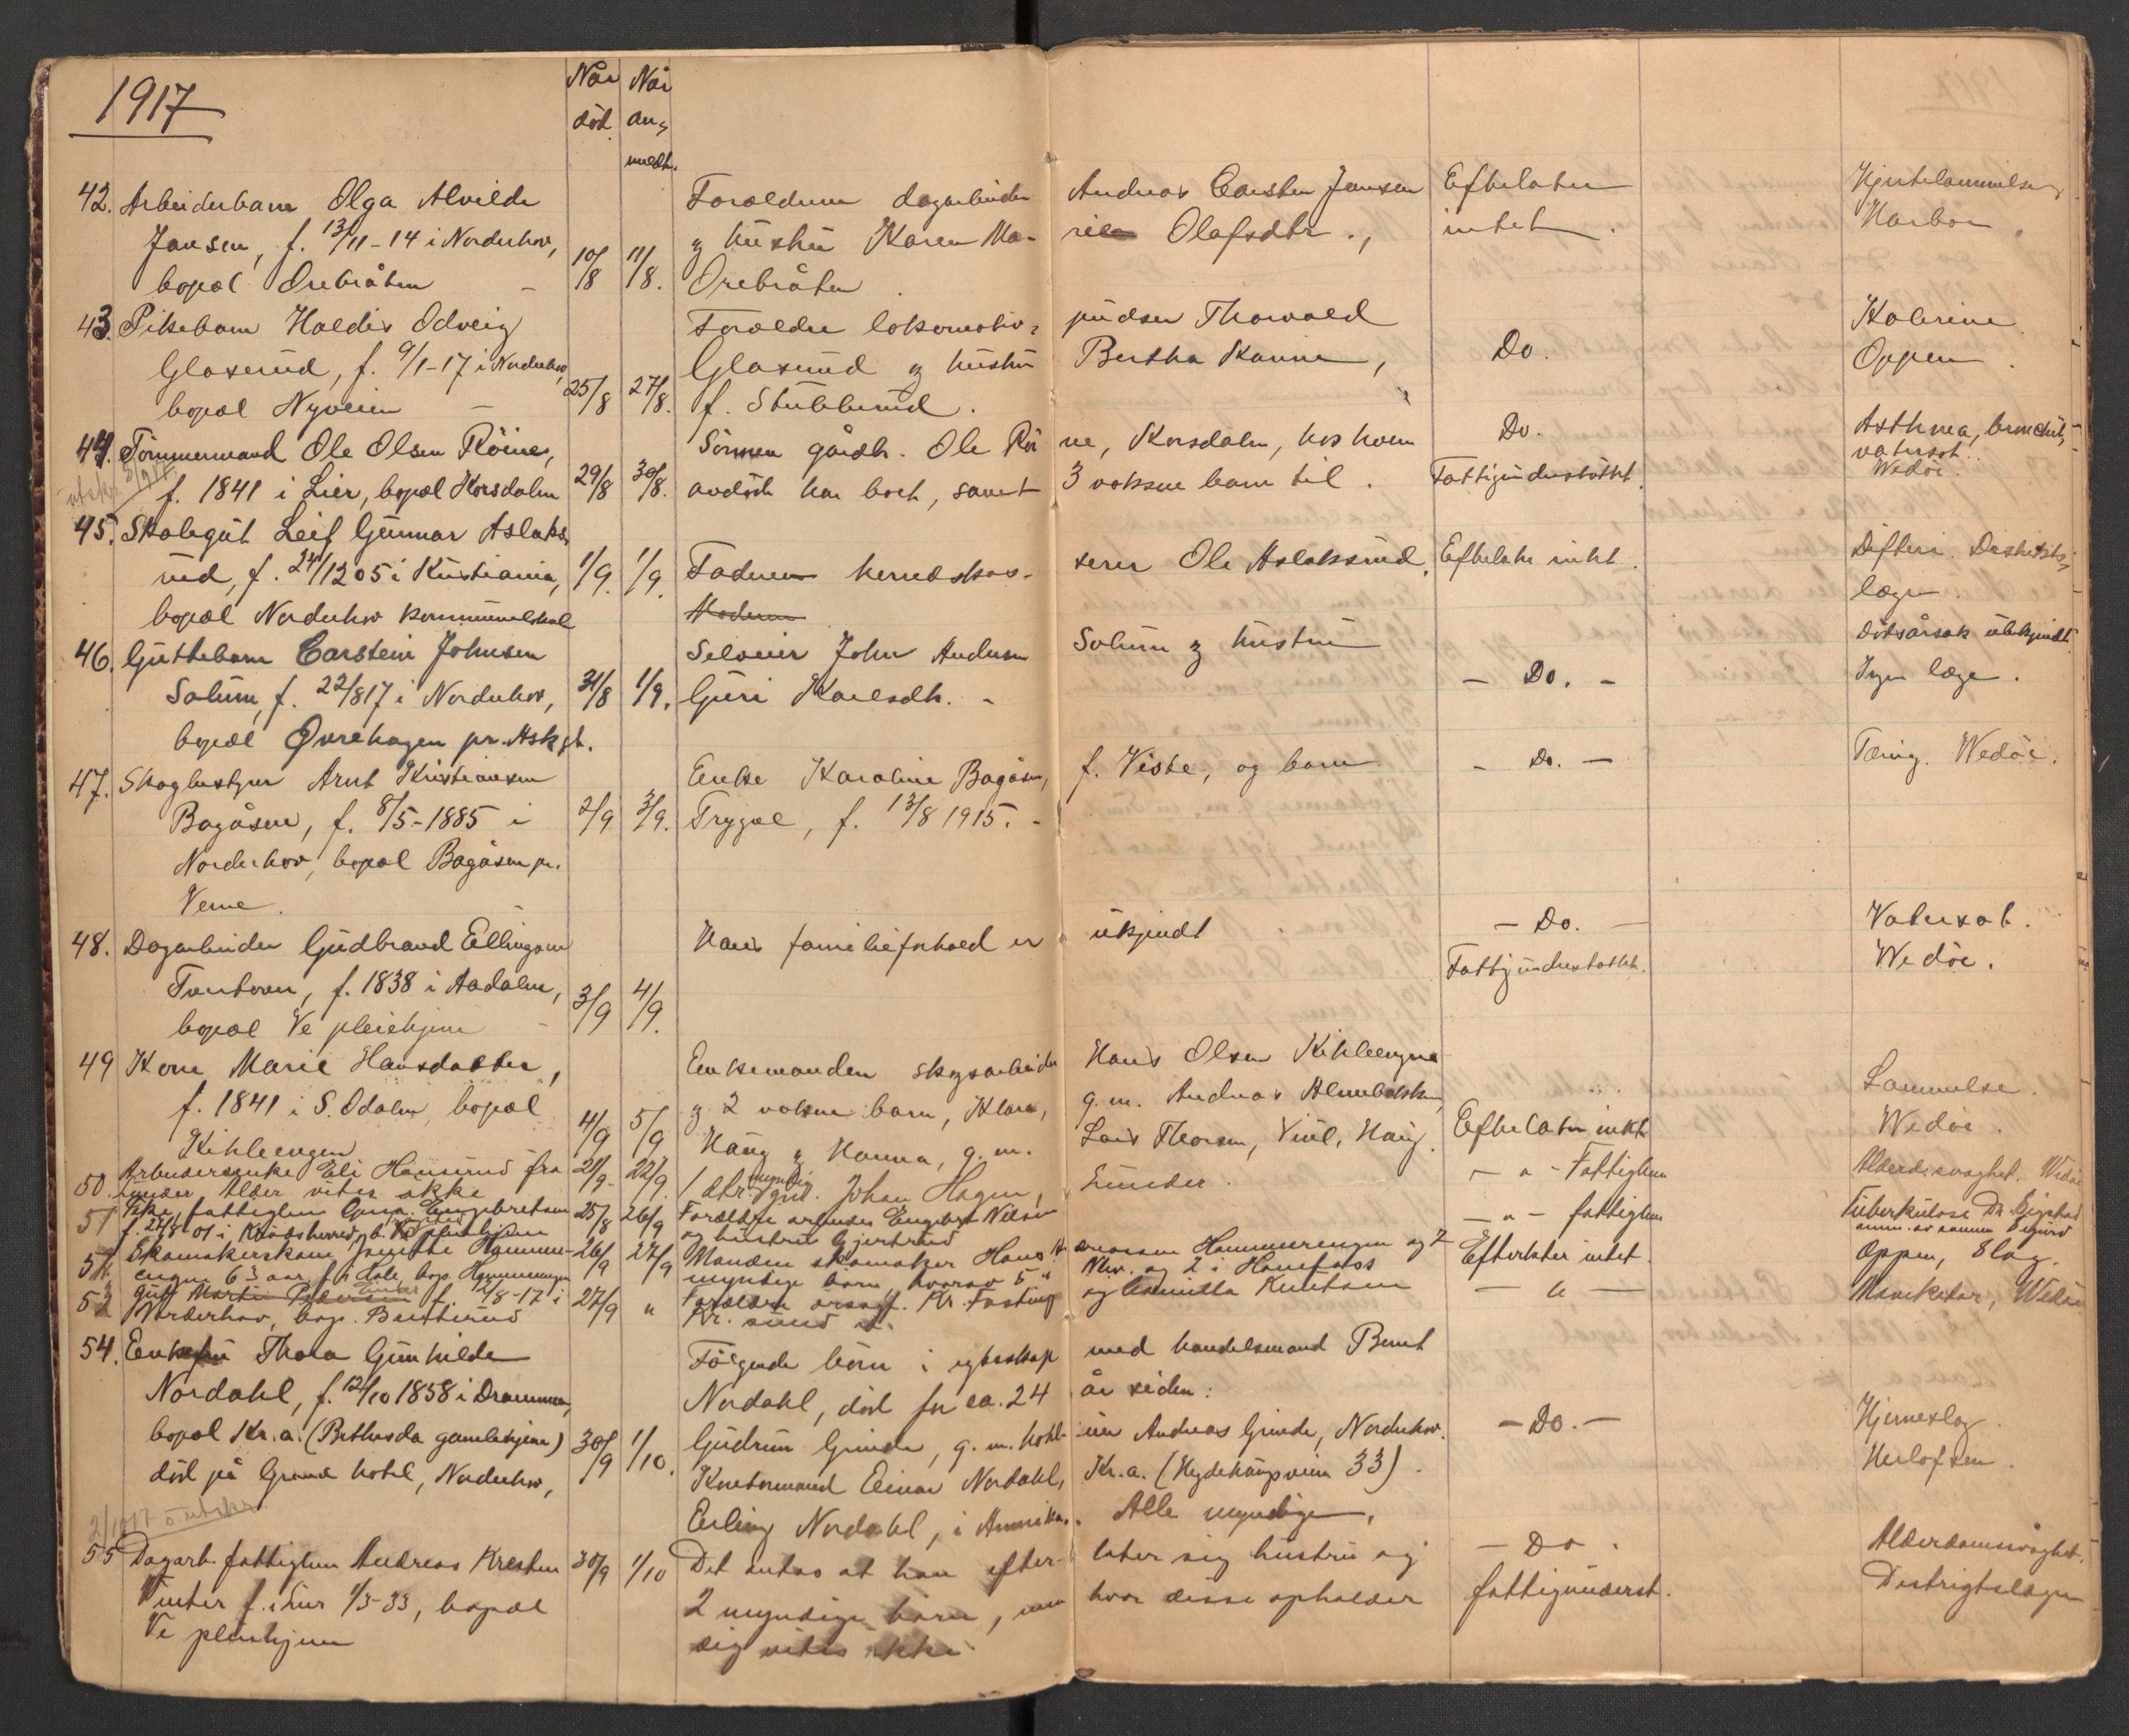 1917
Når død
Når an-
meldt.
42. Arbeiderbarn Olga Alvilde
Jansen, f. 13/11-14 i Norderhov,
bopæl Orebråten - 10/8 11/8.
Forældrene dagarbeider Andreas Carsten Jensen
og hustru Karen Marie Olafsdtr.,
Orebråten.
Efterlater
intet.
Hjertelammelse
Harboe.
43. Pikebarn Haldis Odveig
Glaserud, f. 9/1-17 i Norderhov,
bopæl Nyveien - 25/8 27/8.
Forældre lokomotiv-pudser Thorvald
Glaserud og hustru Bertha Karine,
f. Stubberud.
Do.
Kolerine.
Oppen.
44. Tømmermand Ole Olsen Röine,
f. 1841 i Lier, bopæl Korsdalen 29/8 30/8.
Sønnen gårdbr. Ole Röine, Korsdalen, hos hvem
avdöde har boet, samt 3 voksne barn til.
Do.
Fattigunderstöttet.
Asthma, bronchit,
vatersot.
Wedöe.
45. Skolegut Leif Gunnar Aslaks-
rud, f. 24/12 05 i Kristiania, 1/9. 1/9.
bopæl Norderhov kommunelokale
Faderen herredskasserer Ole Aslaksrud.
Moderen
Efterlater intet.
Difteri. Distrikts-
lægen.
46. Guttebarn Carstein Johnsen
Solum, f. 22/8 17 i Norderhov, 31/8 1/9.
bopæl Øvrehagen pr. Ask st.
Selveier John Andersen Solum og hustru
Guri Karlsdtr. -
- Do. -
Dödsårsak ubekjendt.
Ingen læge.
47. Skogbestyrer Arnt Kristiansen
Bagåsen, f. 8/5-1885 i 2/9 3/9.
Norderhov, bopæl Bagåsen pr.
Veme.
Enke Karoline Bagåsen, f. Viske, og barn
Trygve, f. 13/8 1915. -
- Do. -
Tæring. Wedöe.
48. Dagarbeider Gudbrand Ellingsen
Tventoen, f. 1838 i Aadalen, 3/9 4/9.
bopæl Ve pleiehjem
Hans familieforhold er ukjendt
- Do. -
Fattigunderstöttet.
Vatersot.
Wedöe.
49 Kone Marie Hansdatter,
f. 1841 i S. Odalen, bopæl 4/9 5/9
Kihleengen
Enkemanden skogsarbeider Hans Olsen Kihleengen
og 2 voksne barn, Klara, g.m. Andreas Almebakken,
Haug og Hanna, g. m. Lars Thorsen, Viul, Haug.
Efterlater intet
Lammelse.
Wedöe.
50. Arbeiderenke Eli Hansrud fra 21/9- 22/9.
Alder vites ikke
1 dtr. myndig Johan Hagen,
- " - Fattiglem
Alderdsvaghet. Wedöe
51 fattiglem Engebretsen 25/8 26/9
f. 27/8-01 i Krödsherred,
Forældre arbeider Engebret Nilsen
og hustru Gjertrud
- " - fattiglem
Tuberkulose Dr. Bigstad
52. Skomakerkone Hammer- 26/9 27/9
engen 63 aar, f. i Hole, bop. Hammerengen
Manden skomaker Hans Hammerengen og 7
myndige barn, hvorav 5 i og 2 i Hønefoss
Efterlater intet
Oppen, Slag.
53 Gutt Martin Pedersen f. 12/8-17 i 27/9 "
Norderhov, bop. Benterud
Forældre Kr. Fosting og Camilla Knutsen
- " -
Mavekatar, Wedöe
54. Enkefru Thora Gunhilde
Nordahl, f. 12/10 1858 i Drammen,
bopæl Kr.a. (Bethesda gamlehjem) 30/9 1/10.
död på Grand hotel, Norderhov,
Fölgende börn i egteskap med handelsmand Bernt
Nordahl, död for ca. 24 år siden:
Gudrun Grinde, g. m. hotel-eier Andreas Grinde, Norderhov.
Kontormand Einar Nordahl, Kr.a. (Heydehaugsveien 33).
Erling Nordahl, i Amerika. Alle myndige.
- Do. -
Hjerneslag.
Herlofsen.
55 Dagarb. fattiglem Andreas Kresten 30/9 1/10
Vinter f. i Lier 1/3-33, bopæl
Ve pleiehjem
Det antas at han efter-later sig hustru og
2 myndige barn, men hvor disse opholder
sig vites ikke
- Do.
fattigunderst.
Alderdomssvaghet.
Distrigtslægen